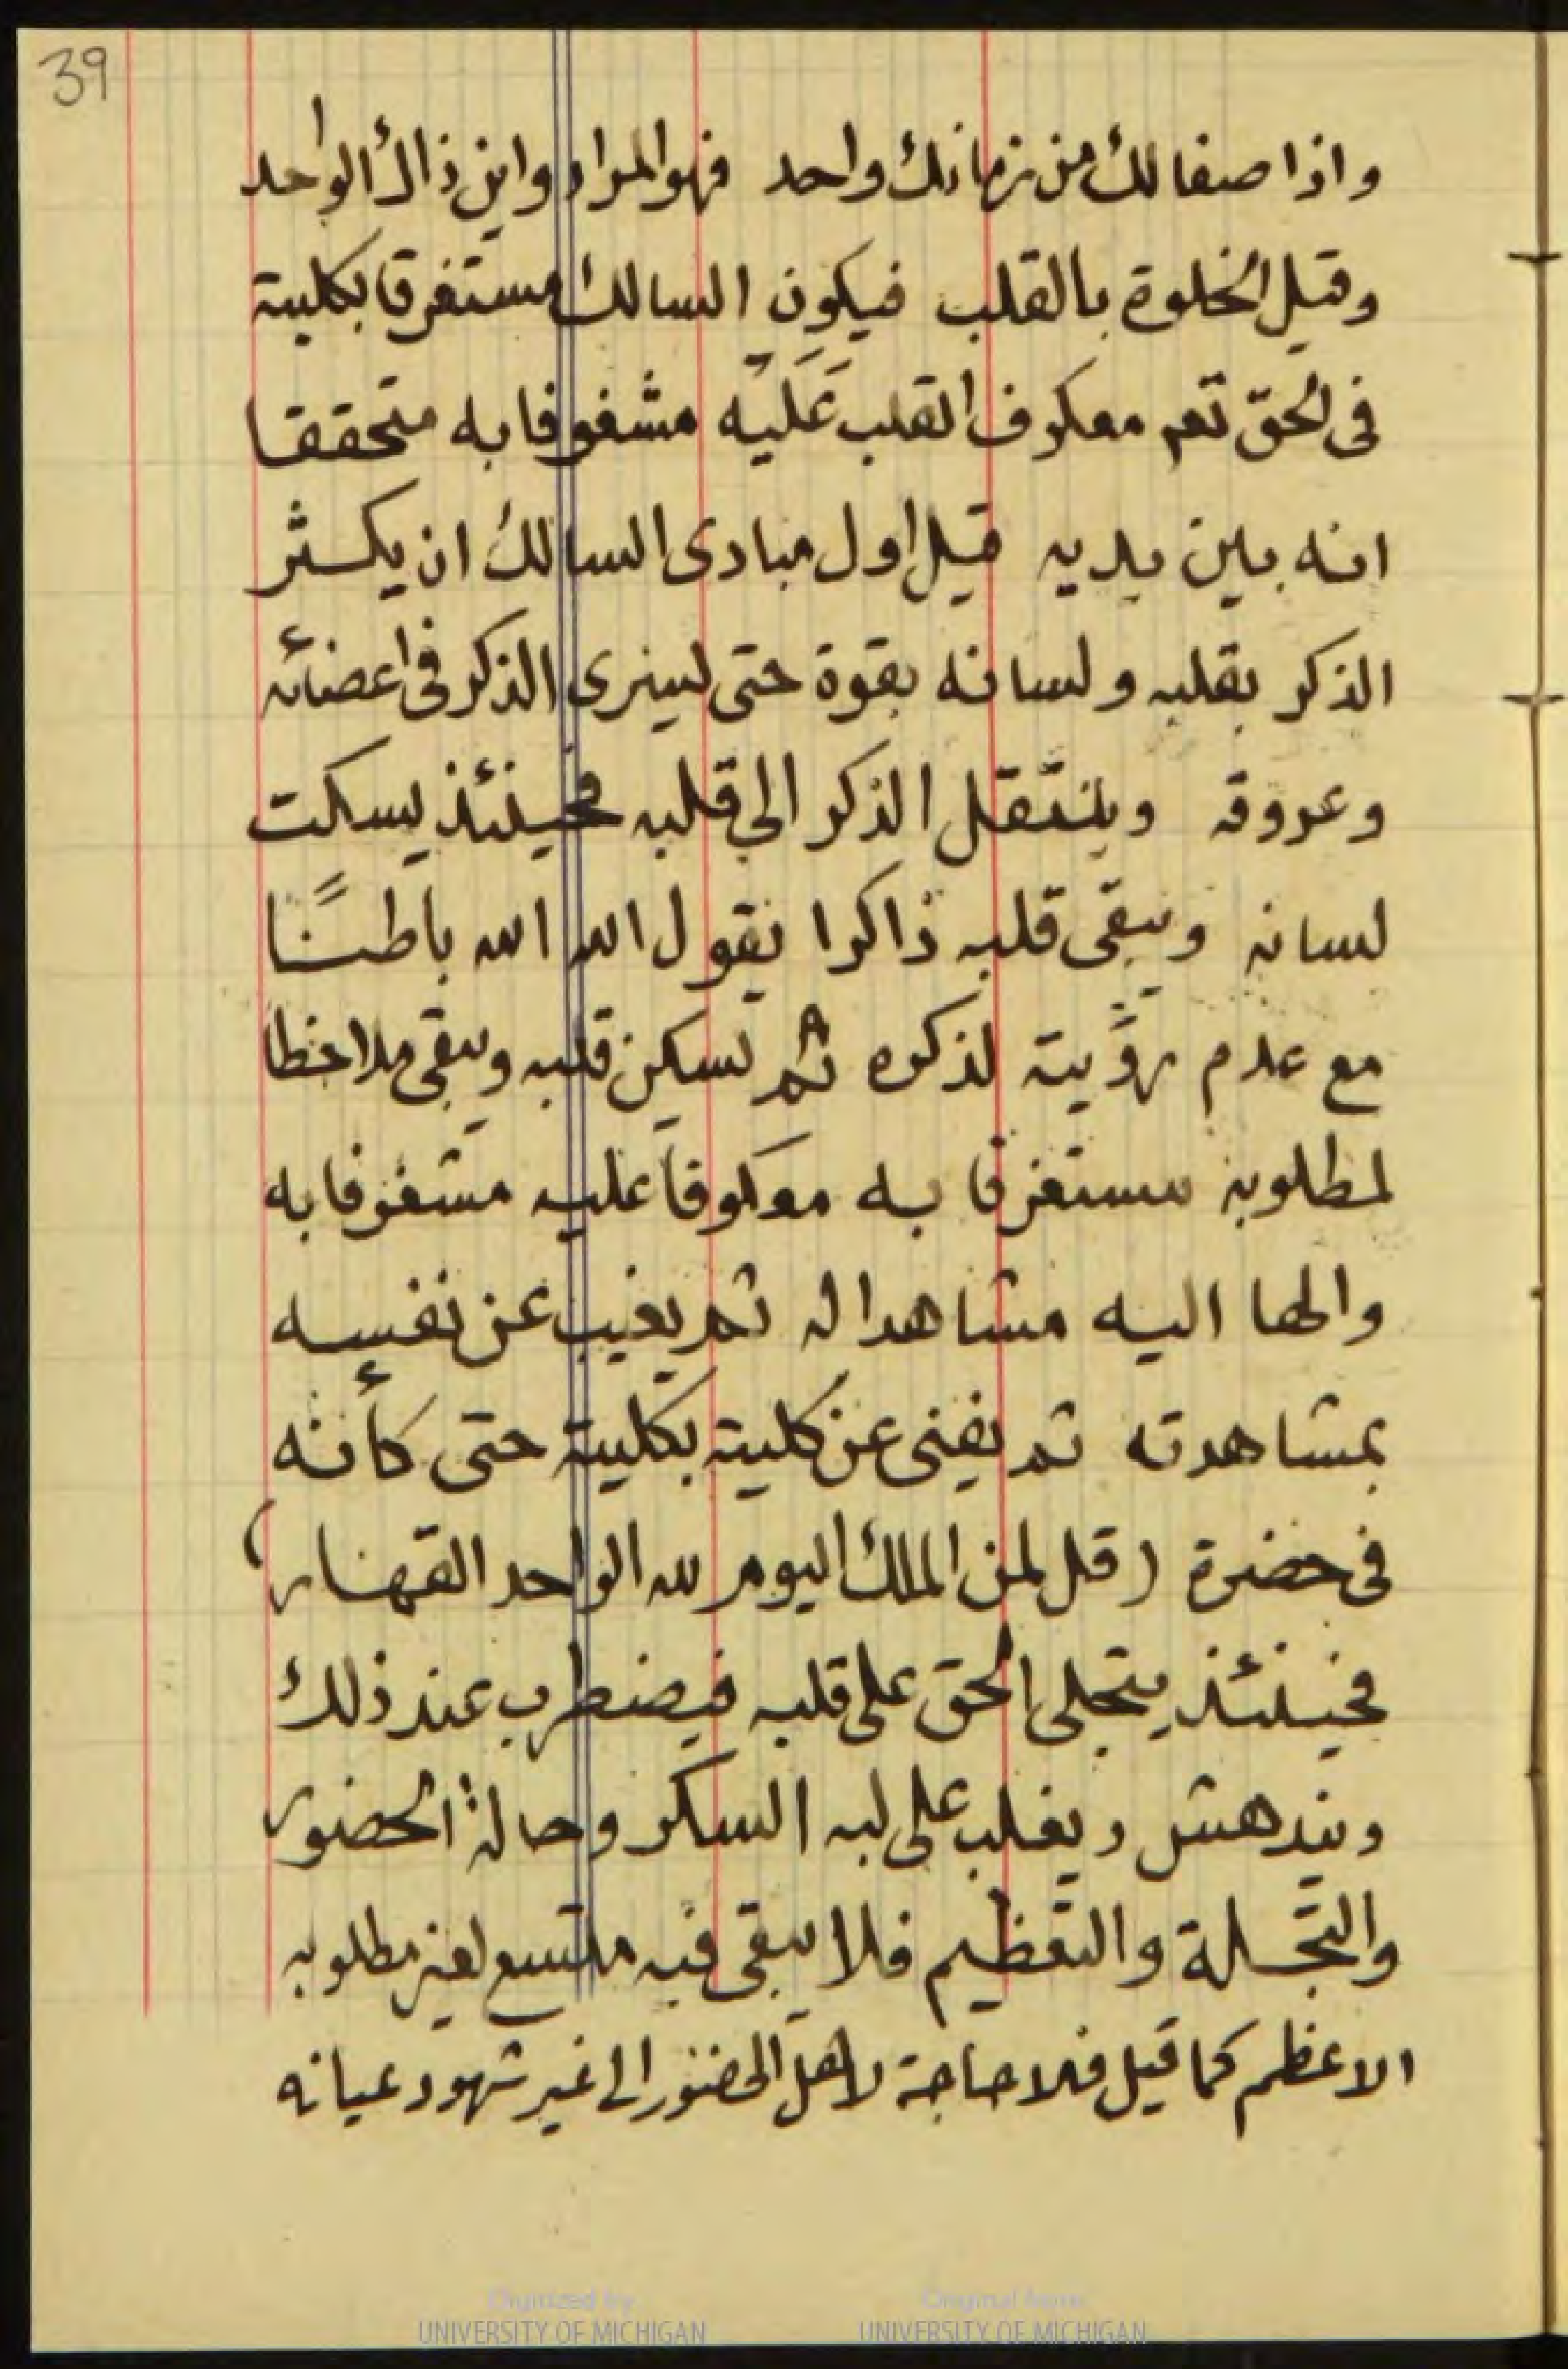 39
واذا صفا لك من زمانك واحد فهو المراد واين ذاك الواحد
وقيل الخلوة بالقلب فيكون السالك مستغرقا بكلية
فى الحق تعم معكوف القلب عَلَيْه مشغوفا به متحققا
انه بين يديه قيل اول مبادى السالك ان يكثر
الذكر بقلبه ولسانه بقوة حتى ليسرى الذكر فى اعضائه
وعروقه وينتقل الذكر الى قلبه فحينئذ يسكت
لسانه ويبقى قلبه ذاكرا يقول الله الله باطنًا
مع عدم رؤيته لذكره ثم يسكن قلبه ويبقى ملاحظا
لمطلوبه مستغرقا به معكوفا عليه مشغوفا به
والها اليه مشاهدا له ثم يغيب عن نفسه
بمشاهدته ثم يفنى عن كلية بكلية حتى كأنه
فى حضرة (قل لمن الملك اليوم لله الواحد القهار)
فحينئذ يتجلى الحق على قلبه فيضطرب عند ذلك
ويندهش ويغلب على لبه السكر وحالة الحضور
والتجلة والتعظيم فلا يبقى فيه متسع لغير مطلوبه
الاعظم كما قيل فلا حاجة لاهل الحضور الى غير شهود عيانه
Digitized by
UNIVERSITY OF MICHIGAN
Original from
UNIVERSITY OF MICHIGAN